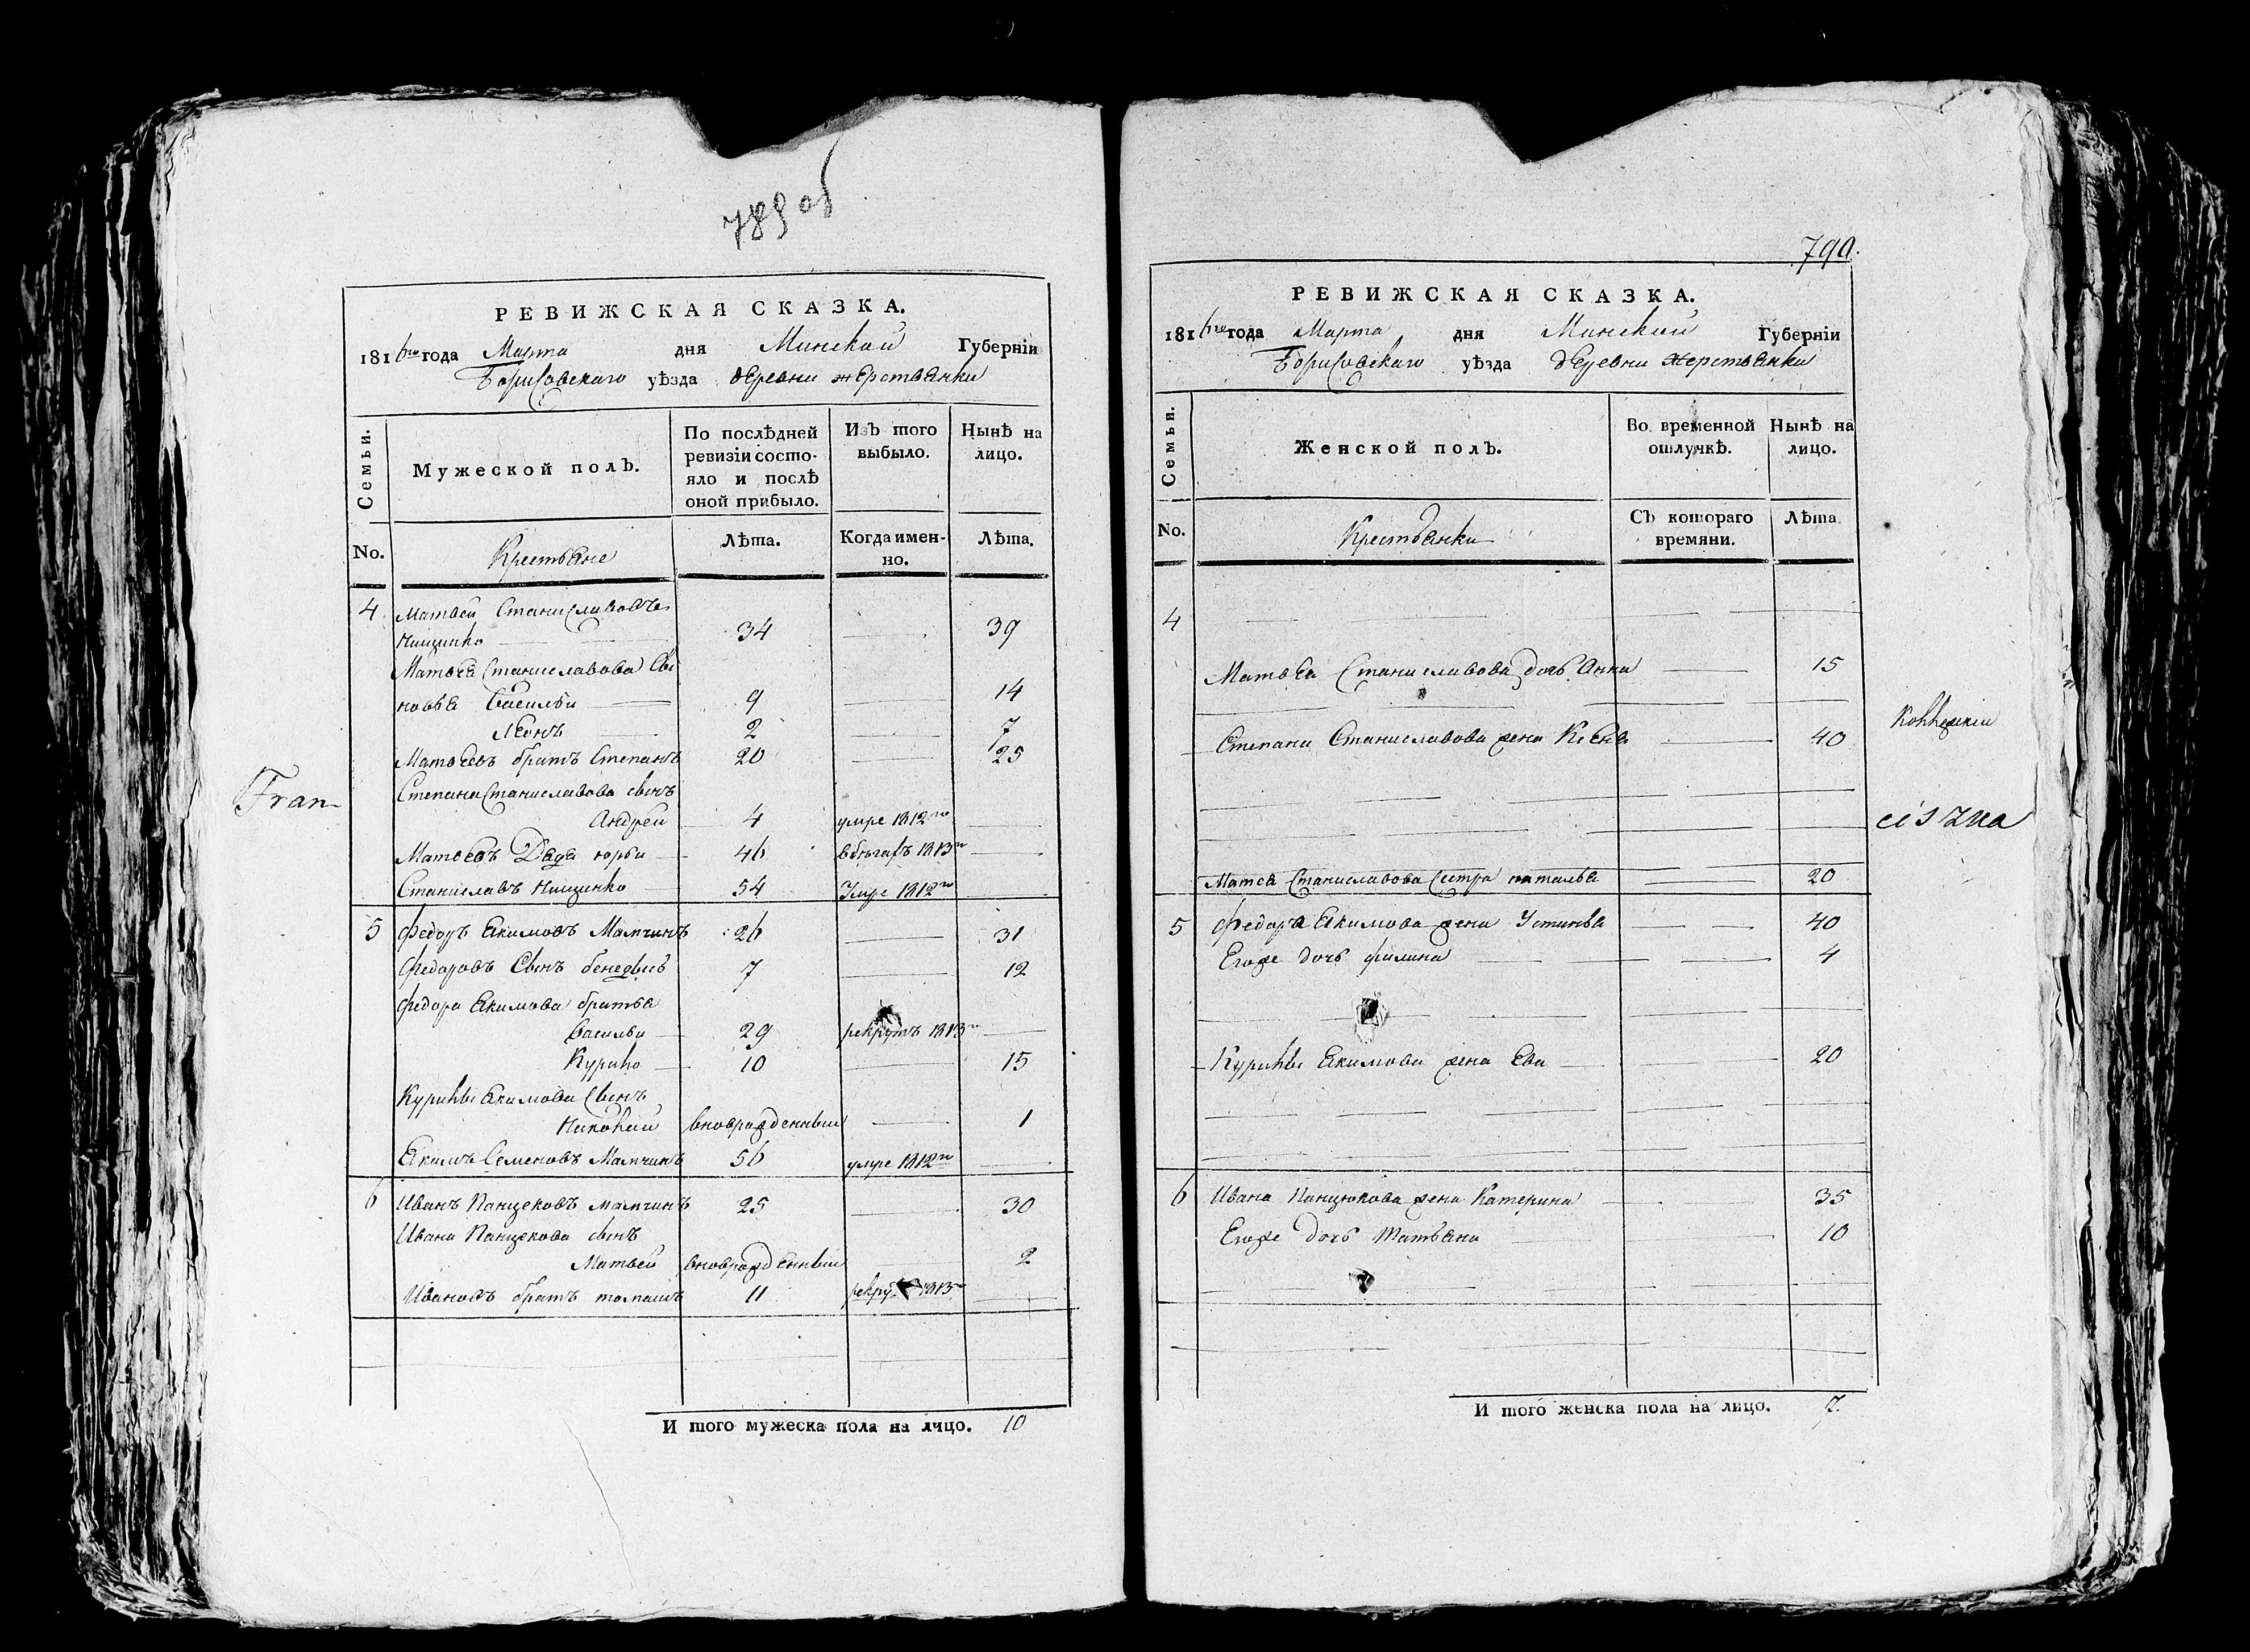 789 об
РЕВИЖСКАЯ СКАЗКА.
1816го года Марта дня Минской Губерніи
Борисовскаго уѣзда деревни жерствянки
Семьи.
Мужеской полъ.
По послѣдней ревизіи состояло и послѣ оной прибыло.
Изъ того выбыло.
Нынѣ на лицо.
No.
Крестьяне
Лѣта.
Когда именно.
Лѣта.
4 Матвей Станиславовъ
Нищинко 34 39
Матвея Станиславова сы
новья Васильи 9 14
Леонъ 2 7
Матвеевъ братъ Степанъ 20 25
Степана Станиславова сынъ
Андрей 4 умре 1812го
Матвеевъ Дядя юрьи 46 в бегахъ 1813го
Станиславъ Нищинко 54 Умре 1812го
5 Федоръ Якимовъ Мамчицъ 26 31
Федоровъ Сынъ бенедысь 7 12
Федора Якимова братья
Васильи 29 рекрутъ 1813го
Курило 10 15
Курилы Якимова Сынъ
вноврожденный 1
Якимъ Семеновъ Мамчицъ 56 умре 1812го
6 Иванъ Панцековъ мамчицъ 25 30
Ивана Панцекова сынъ
Матвей вноврожденный 2
Ивановъ братъ томашъ 11 1813
И того мужеска пола на лицо. 10
Fran-
790.
РЕВИЖСКАЯ СКАЗКА.
1816го года Марта дня Минской Губерніи
Борисовскаго уѣзда деревни жерствянки
Семьи.
Женской полъ.
Во временной отлучкѣ.
Нынѣ на лицо.
No.
Крестьянки
Съ котораго времяни.
Лѣта.
4
Матвея Станиславова дочь Анна 15
Степана Станиславова жена 40
Матвея Станиславова Сестра наталья 20
5 Федора Якимова жена Устинья 40
Егоже дочь 4
Курилы Якимова жена Ева 20
6 Ивана Панцюкова жена Катерина 35
Егоже дочь Татьяна 10
И того женска пола на лицо. 7.
ciszka